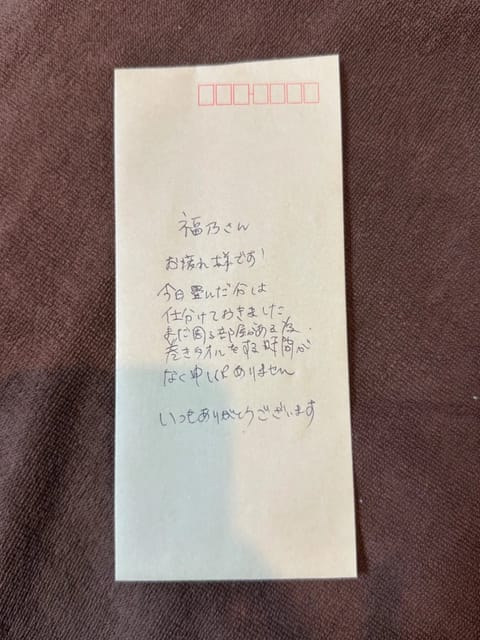 福乃さん
お疲れ様です!
今日畳んだ分は
仕分けておきました
まだ回る部屋がある為、
巻きタオルをする時間が
なく申し訳ありません
いつもありがとうございます